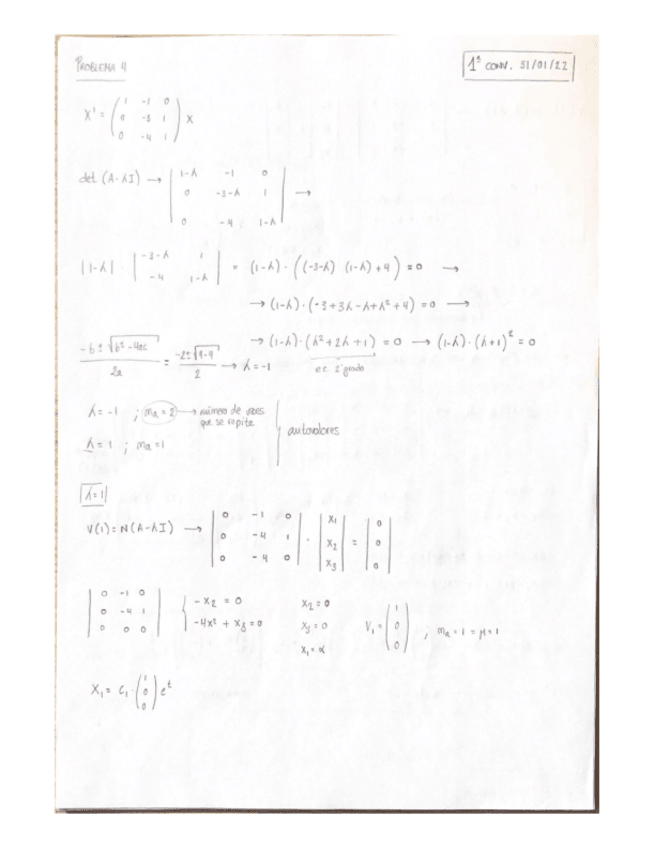 PROBLEMA 4
1ª CONV. 31/01/22
X' = ( 1 -1 0 ; 0 -3 1 ; 0 -4 1 ) X
det (A-λI) → | 1-λ -1 0 ; 0 -3-λ 1 ; 0 -4 1-λ | →
|1-λ| · | -3-λ 1 ; -4 1-λ | = (1-λ) · ((-3-λ) (1-λ) + 4) = 0 →
→ (1-λ) · (-3+3λ-λ+λ²+4) = 0 →
→ (1-λ) · (λ²+2λ+1) = 0 → (1-λ) · (λ+1)² = 0
ec. 2º grado
(-b ± √(b²-4ac))/2a = (-2±√(4-4))/2 → λ=-1
λ = -1 ; ma = 2 → número de veces que se repite
λ = 1 ; ma = 1
autovalores
λ=1
V(1) = N(A-λI) → | 0 -1 0 ; 0 -4 1 ; 0 -4 0 | · | x₁ ; x₂ ; x₃ | = | 0 ; 0 ; 0 |
| 0 -1 0 ; 0 -4 1 ; 0 0 0 | { -x₂ = 0 ; -4x² + x₃ = 0
x₂ = 0
x₃ = 0
x₁ = α
V₁ = ( 1 ; 0 ; 0 ) ; ma = 1 = μ = 1
X₁ = C₁ · ( 1 ; 0 ; 0 ) eᵗ